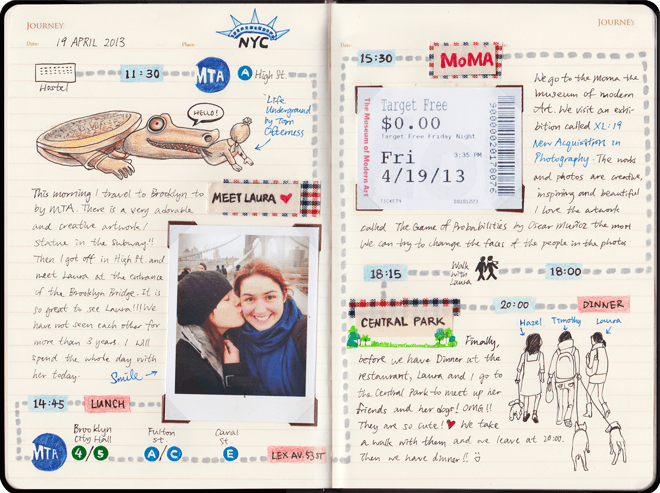 JOURNEY
Date: 19 APRIL 2013
Place:
NYC
11:30
MTA
A High St.
Hostel
"Life
Underground
by Tom
Otterness
HELLO!
This morning I travel to Brooklyn to
by MTA. There is a very adorable
and creative artwork/
statue in the subway!!
Then I got off in High St. and
meet Laura at the entrance
of the Brooklyn Bridge. It is
so great to see Laura!!! We
have not seen each other for
more than 3 years. I will
spend the whole day with
her today.
MEET LAURA
Smile
14:45
LUNCH
MTA
Brooklyn
City Hall
4/5
Fulton
St.
A/C
Canal
St.
E
LEX AV. 53 ST
JOURNEY
Date:
15:30
MoMA
The Museum of Modern Art
Target Free
$0.00
Target Free Friday Night
3:35 PM
Fri
4/19/13
TICKETY
900000020178076
We go to the Moma the
museum of modern
Art. We visit an exhi-
bition called XL:19
New Acquisition in
Photography. The works
and photos are creative,
inspiring and beautiful
I love the artwork
called The Game of Probabilities by Oscar Muñoz the most
We can try to change the faces of the people in the photo
18:15
Walk
with
Laura
18:00
CENTRAL PARK
20:00
DINNER
Hazel
Timothy
Laura
Finally,
before we have Dinner at the
restaurant, Laura and I go to
the Central Park to meet up her
friends and her dogs! OMG!!
They are so cute! ♥ We take
a walk with them and we leave at 20:00.
Then we have dinner!! :)